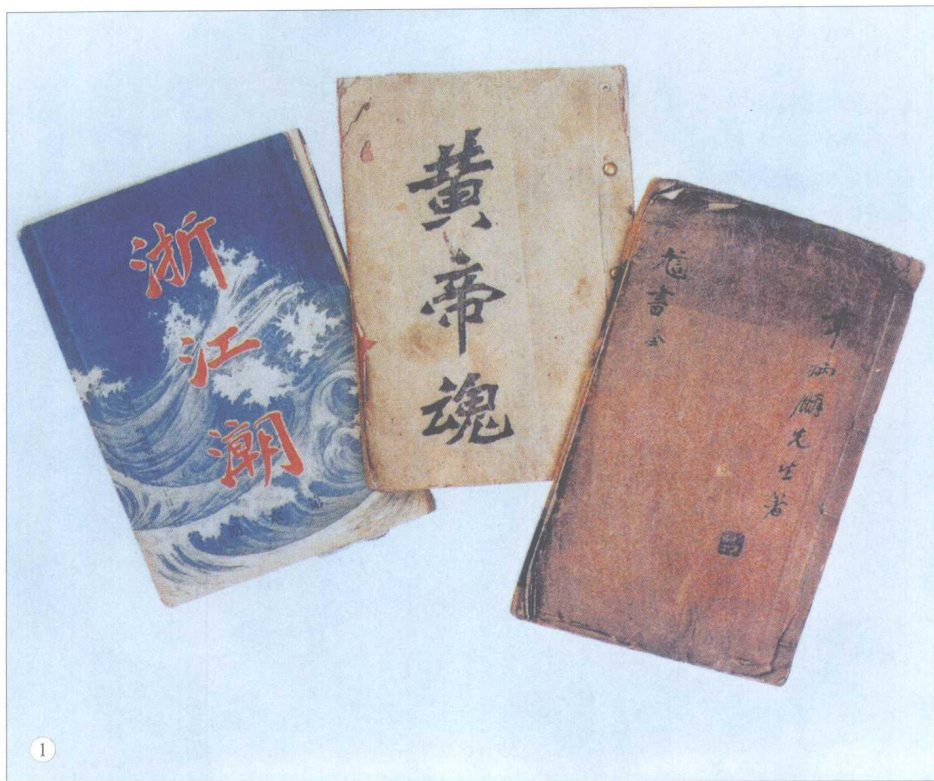 浙江潮
黄帝魂
訄書 全
章炳麟先生著
1